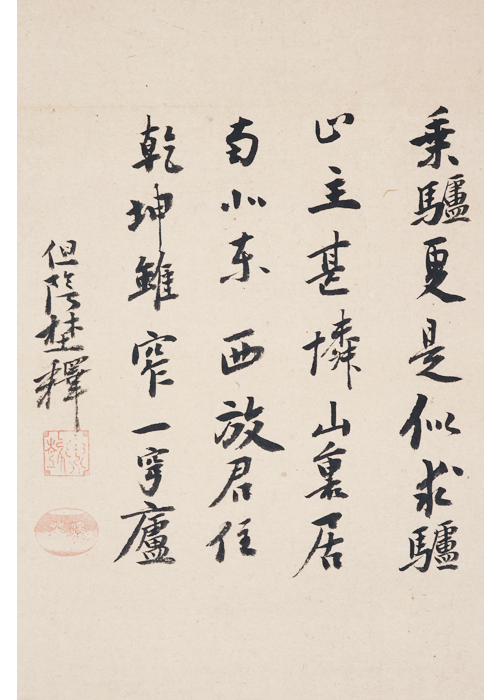 乗驢更是似求驢
主甚憐山裏居
南北東西放君住
乾坤雖窄一穹廬
但陰埜釋